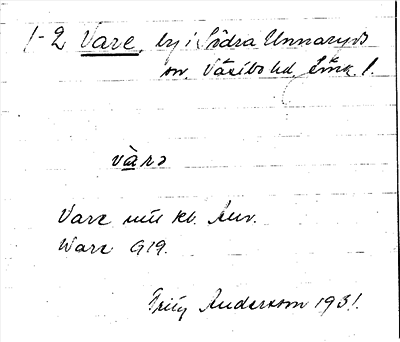 1-2 Vare, by i Södra Unnaryds
sn, Västbo hd, Jönk. l.
vàrə
Vare uttl kb. Auv.
Ware G19.
Fritz Anderson 1931.